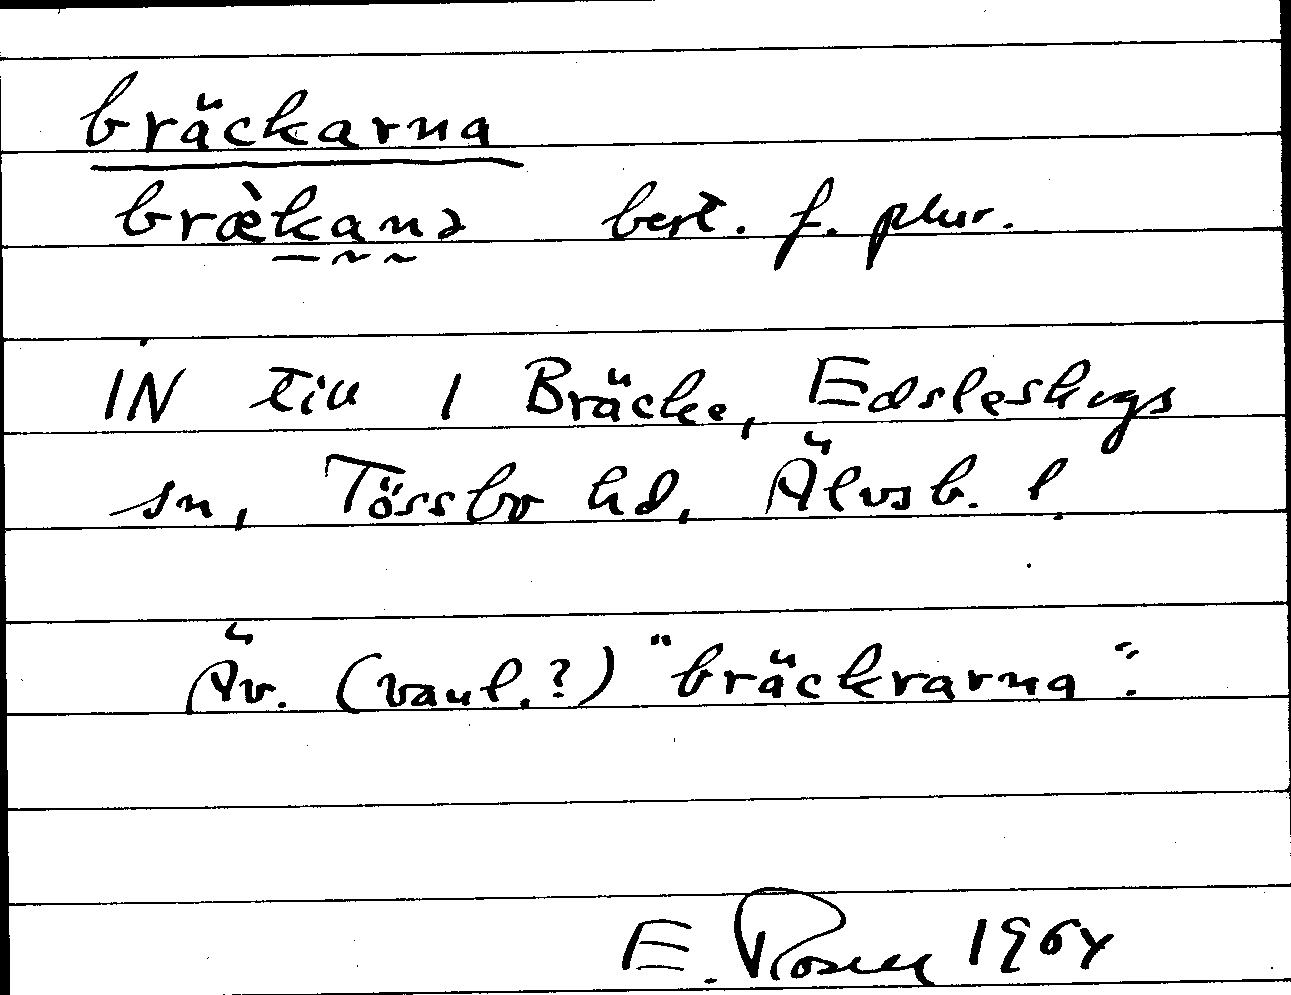 bräckarna
bræ̀kanə best. f. plur.
IN till 1 Bräcke, Edsleskogs
sn, Tössbo hd, Älvsb. l.
Äv. (vanl.?) "bräckrarna".
E. Rosén 1964